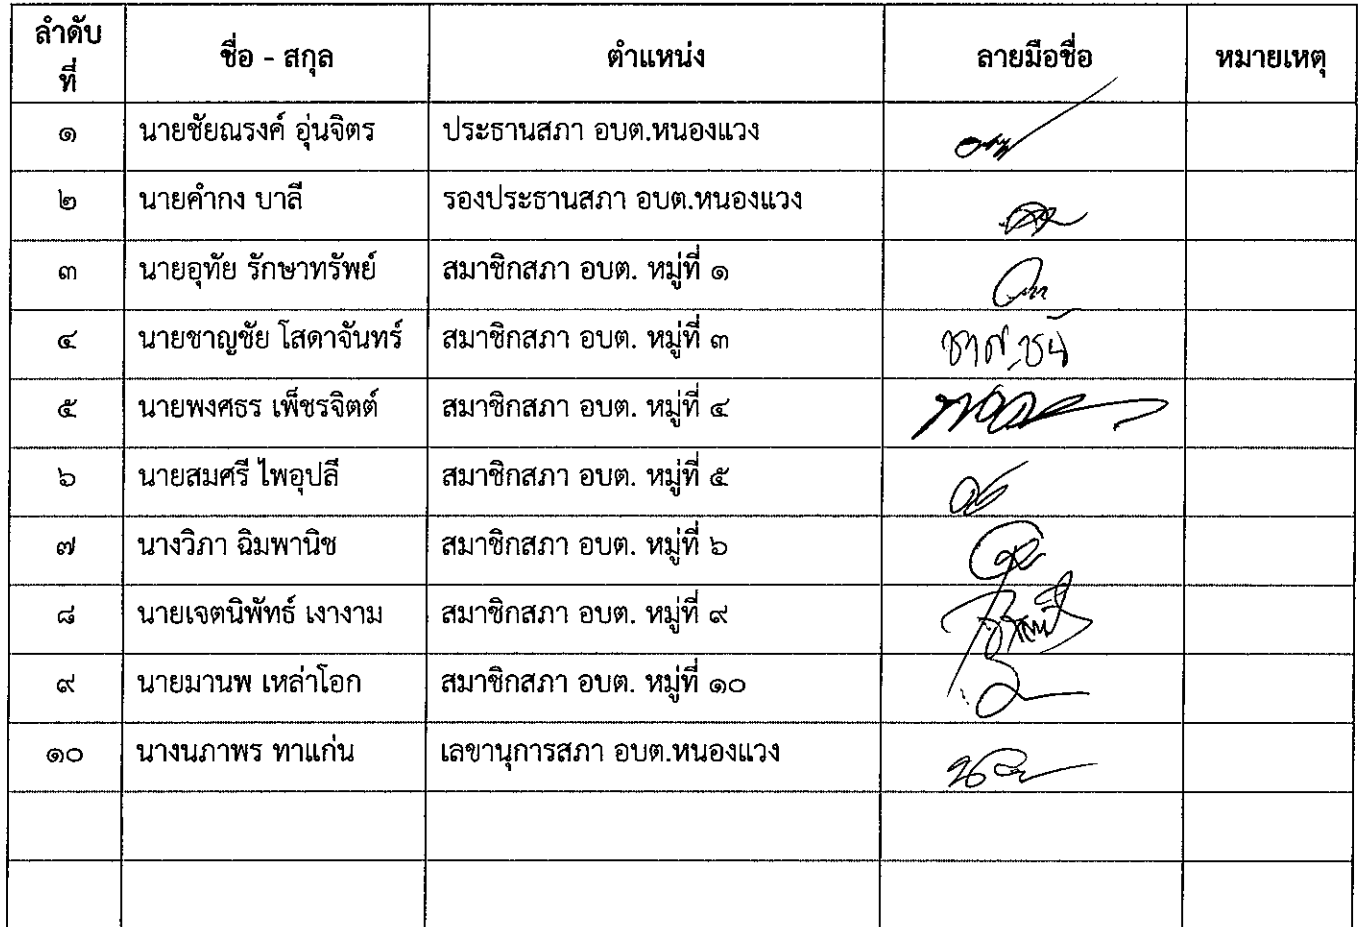 ลำดับที่ ชื่อ - สกุล ตำแหน่ง ลายมือชื่อ หมายเหตุ
๑ นายชัยณรงค์ อุ่นจิตร ประธานสภา อบต.หนองแวง
๒ นายคำกง บาลี รองประธานสภา อบต.หนองแวง
๓ นายอุทัย รักษาทรัพย์ สมาชิกสภา อบต. หมู่ที่ ๑
๔ นายชาญชัย โสดาจันทร์ สมาชิกสภา อบต. หมู่ที่ ๓ ชาญชัย
๕ นายพงศธร เพ็ชรจิตต์ สมาชิกสภา อบต. หมู่ที่ ๔
๖ นายสมศรี ไพอุปลี สมาชิกสภา อบต. หมู่ที่ ๕
๗ นางวิภา ฉิมพานิช สมาชิกสภา อบต. หมู่ที่ ๖
๘ นายเจตนิพัทธ์ เงางาม สมาชิกสภา อบต. หมู่ที่ ๙
๙ นายมานพ เหล่าโอก สมาชิกสภา อบต. หมู่ที่ ๑๐
๑๐ นางนภาพร ทาแก่น เลขานุการสภา อบต.หนองแวง